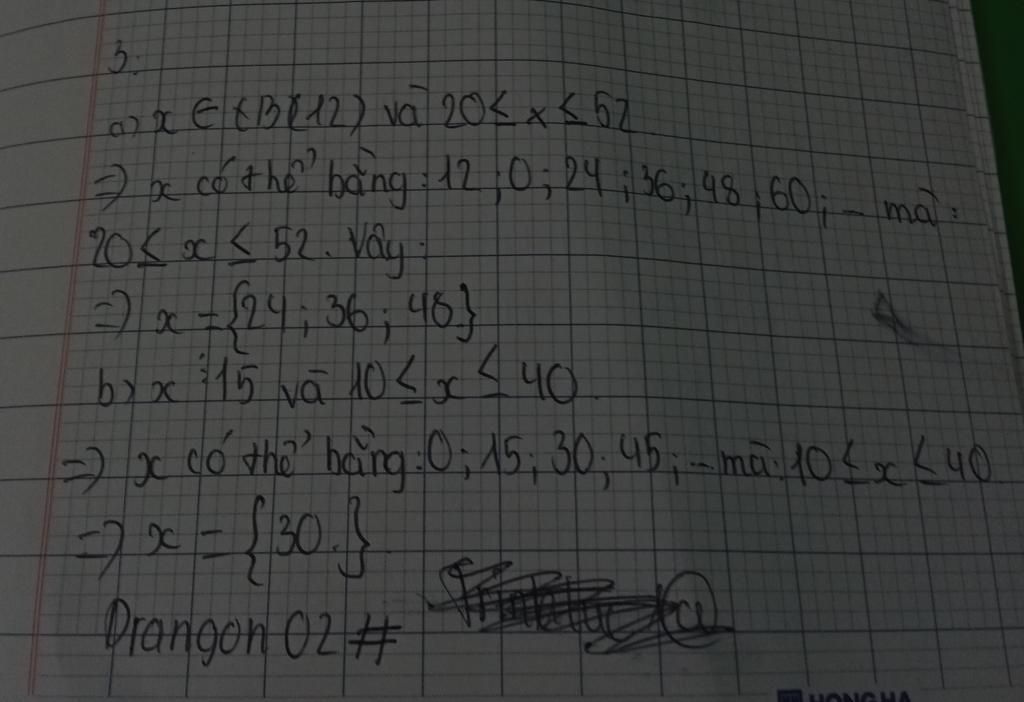 3.
a) x ∈ B(12) và 20 ≤ x ≤ 52
=> x có thể bằng: 12; 0; 24; 36; 48; 60; - mà:
20 ≤ x ≤ 52. Vậy:
=> x = {24; 36; 48}
b) x ⋮ 15 và 10 ≤ x ≤ 40.
=> x có thể bằng: 0; 15; 30; 45; - mà: 10 ≤ x ≤ 40
=> x = {30.}
Drangon 02 #
HONG HA